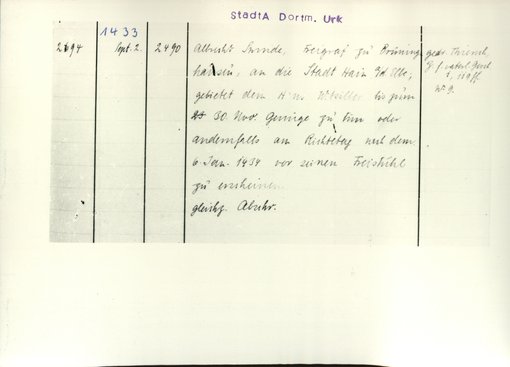 StadtA Dortm. Urk
1433
2694 Sept. 2. 2490 Albrecht Swinde, Freigraf zu Brüning- gedr. Thiersch,
hausen, an die Stadt Hain /d Elbe;
gebietet dem Hans bis zum
30 Nov. Genüge zu tun oder
andernfalls am Richttag nach dem
6 Jan. 1434 vor seinem Freistuhl
zu erscheinen
gleichz. Abschr.
Nr 9.